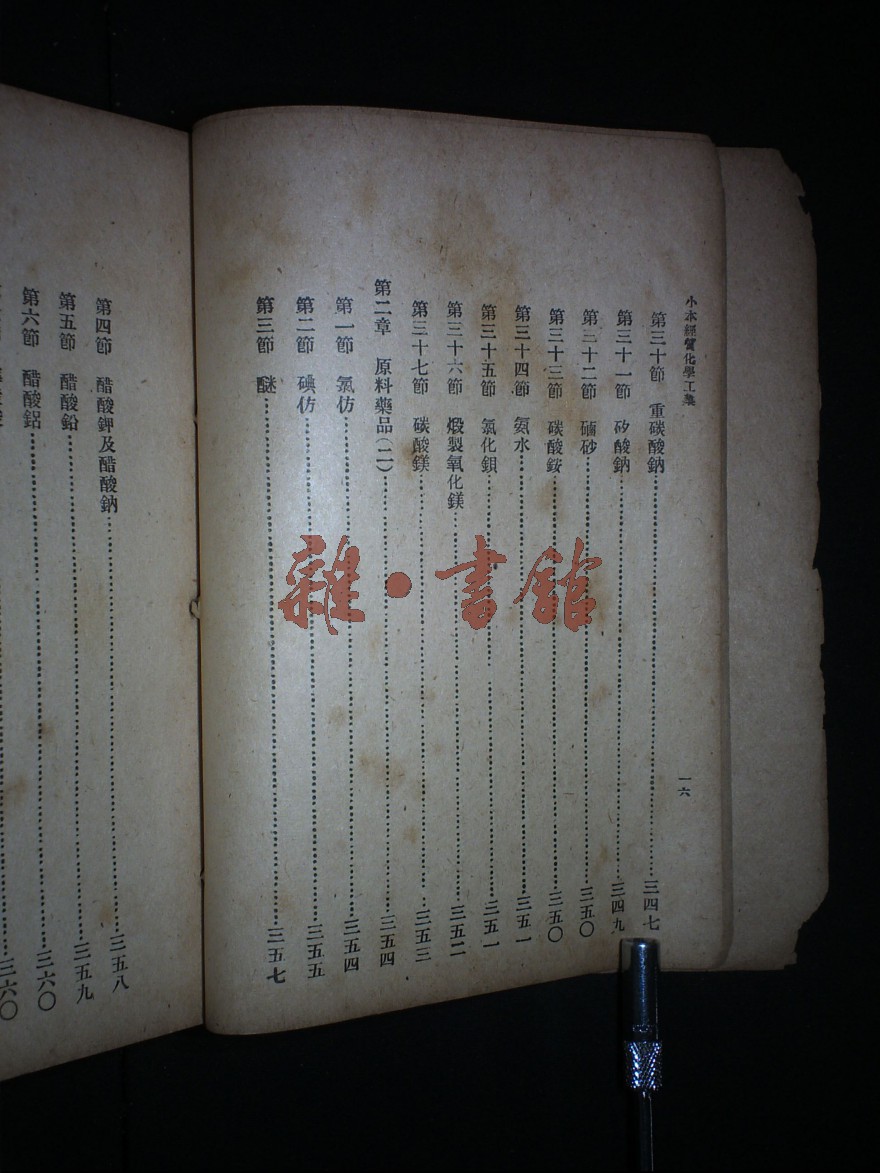 小本經營化學工業
一六
第三十節 重碳酸鈉⋯⋯三四七
第三十一節 矽酸鈉⋯⋯三四九
第三十二節 硇砂⋯⋯三五〇
第三十三節 碳酸銨⋯⋯三五〇
第三十四節 氨水⋯⋯三五一
第三十五節 氯化鋇⋯⋯三五一
第三十六節 煅製氧化鎂⋯⋯三五二
第三十七節 碳酸鎂⋯⋯三五三
第二章 原料藥品(二)⋯⋯三五四
第一節 氯仿⋯⋯三五四
第二節 碘仿⋯⋯三五五
第三節 醚⋯⋯三五七
第四節 醋酸鉀及醋酸鈉⋯⋯三五八
第五節 醋酸鉛⋯⋯三五九
第六節 醋酸鋁⋯⋯三六〇
三六〇
雜·書館